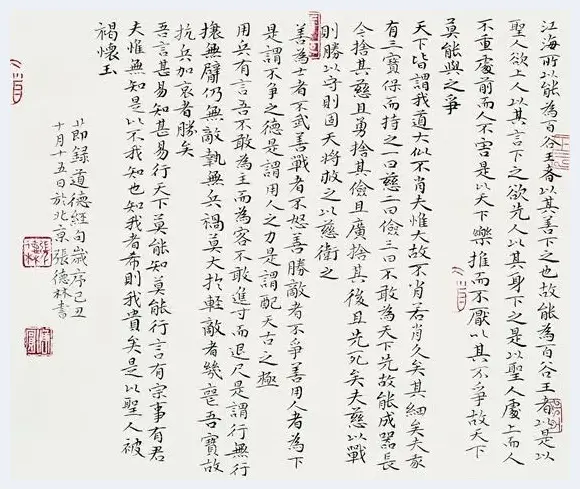 江海所以能為百谷王者以其善下之也故能為百谷王者以是以
聖人欲上人以其言下之欲先人以其身下之是以聖人處上而人
不重處前而人不害是以天下樂推而不厭以其不爭故天下
莫能與之爭
天下皆謂我道大似不肖夫惟大故不肖若肖久矣其細矣夫我
有三寶保而持之一曰慈二曰儉三曰不敢為天下先故能成器長
今捨其慈且勇捨其儉且廣捨其後且先死矣夫慈以戰
則勝以守則固天將救之以慈衛之
善為士者不武善戰者不怒善勝敵者不爭善用人者為下
是謂不爭之德是謂用人之力是謂配天古之極
用兵有言吾不敢為主而為客不敢進寸而退尺是謂行無行
攘無臂仍無敵執無兵禍莫大於輕敵者幾喪吾寶故
抗兵加哀者勝矣
吾言甚易知甚易行天下莫能知莫能行言有宗事有君
夫惟無知是以不我知也知我者希則我貴矣是以聖人被
褐懷玉
節錄道德經句歲序己丑
十月十五日於北京張德林書